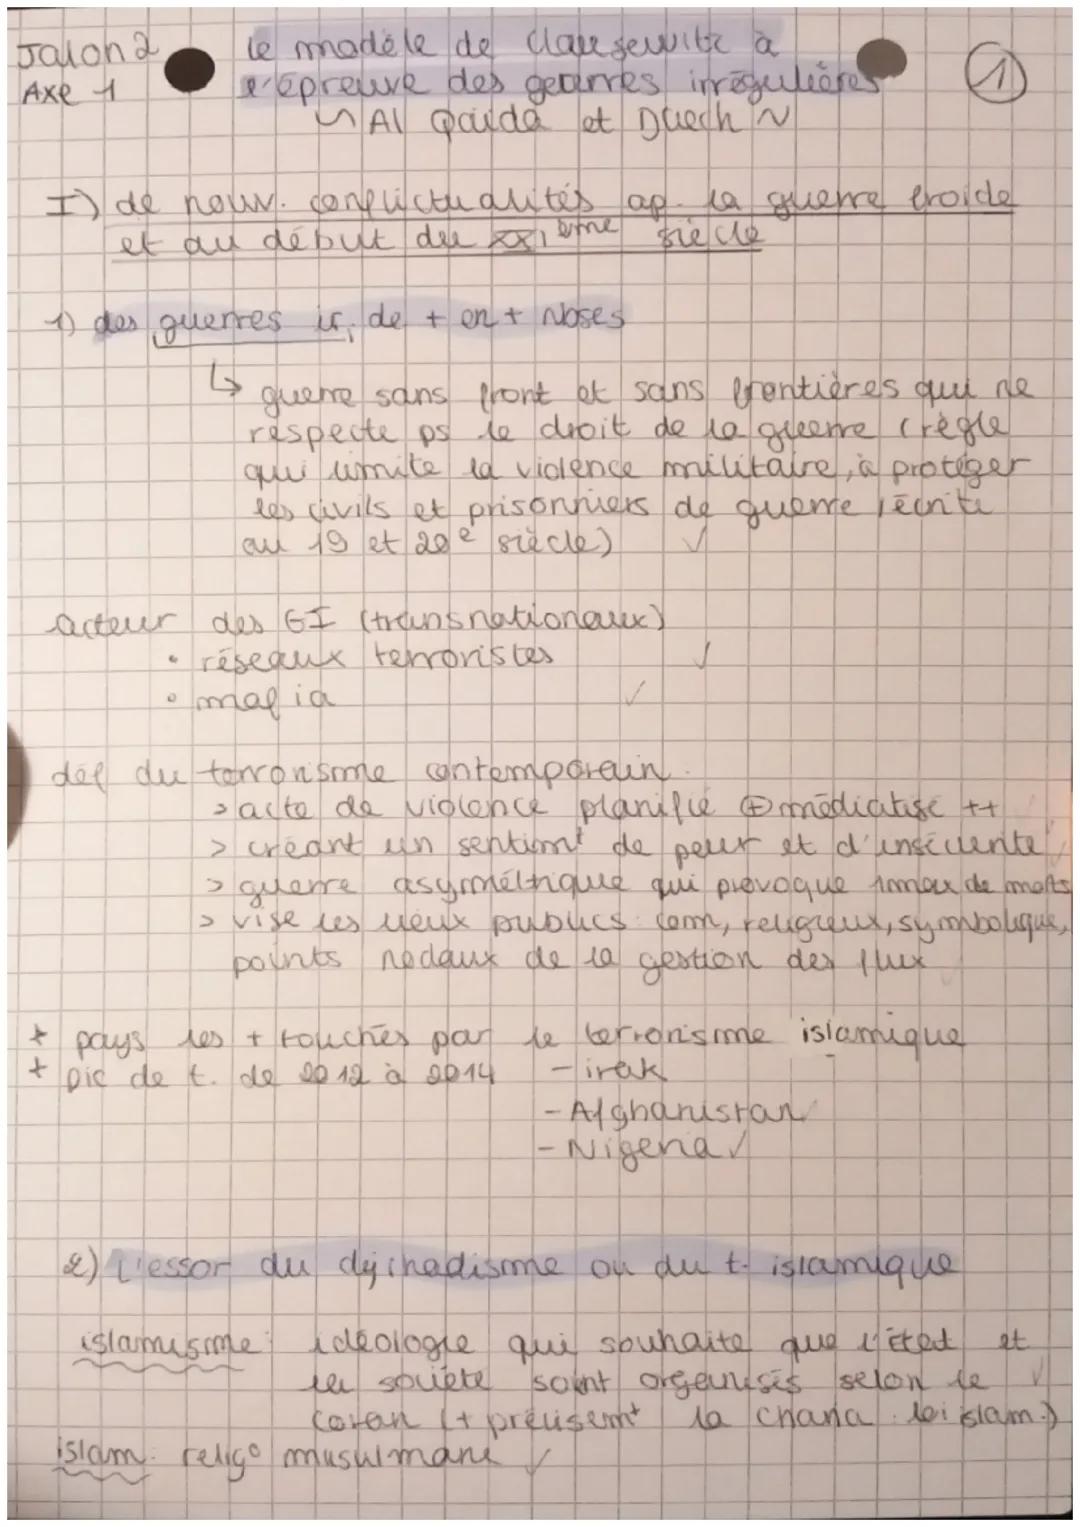 Jalon 2 le modèle de Clausewitz à
Axe 1 l'épreuve des guerres irrégulières
1
~ Al Qaida et Daech ~
I) de nouv. conflictualités ap. la guerre froide
et au début du XXIème siècle
1) des guerres ir. de + en + nbses
↳ guerre sans front et sans frontières qui ne
respecte ps le droit de la guerre (règle
qui limite la violence militaire, à protéger
les civils et prisonniers de guerre, écrite
au 19 et 20e siècle) ✓
acteur des GI (transnationaux)
• réseaux terroristes ✓
• mafia ✓
déf du terrorisme contemporain.
> acte de violence planifié ⊕ médiatisé ++
> créant un sentimt de peur et d'insécurité
> guerre asymétrique qui provoque 1 max de morts
> vise les lieux publics: com, religieux, symbolique,
points nodaux de la gestion des flux
* pays les + touchés par le terrorisme islamique
+ pic de t. de 2012 à 2014 - irak
- Afghanistan
- Nigeria ✓
2) L'essor du djihadisme ou du t. islamique
islamisme: idéologie qui souhaite que l'état et
la société soint organisés selon le
coran (+ précisemt la charia: loi islam.)
islam: religo musulmane ✓